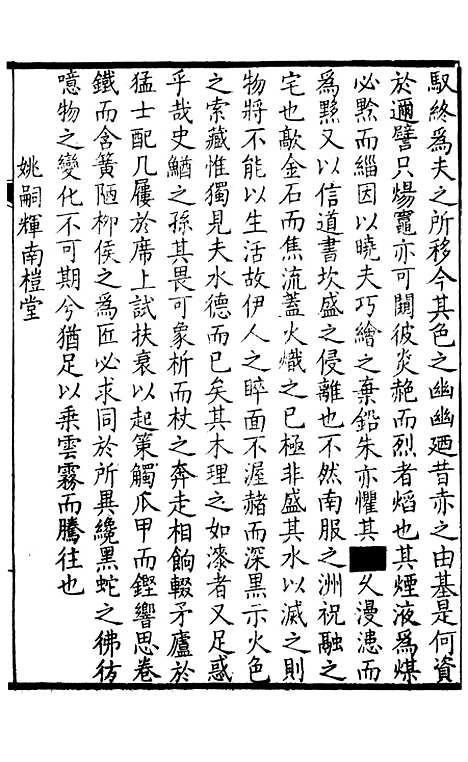 馭終為夫之所移今其色之幽幽廼昔赤之由基是何資
於邇譬只煬竈亦可闚彼炎赩而烈者熖也其煙液為煤
必黔而緇因以曉夫巧繪之棄鉛朱亦懼其久漫漶而
為黟又以信道書坎盛之侵離也不然南服之洲祝融之
宅也歊金石而焦流蓋火熾之已極非盛其水以滅之則
物將不能以生活故伊人之睟面不渥赭而深黑示火色
之索藏惟獨見夫水德而已矣其木理之如漆者又足惑
乎哉史鰌之孫其畏可象析而杖之奔走相餉輟矛廬於
猛士配几屨於席上試扶衰以起策觸瓜甲而鏗響思卷
鐵而含簧陋柳侯之為匠必求同於所異纔黑蛇之彿彷
噫物之變化不可期兮猶足以乘雲霧而騰往也
姚嗣輝南榿堂